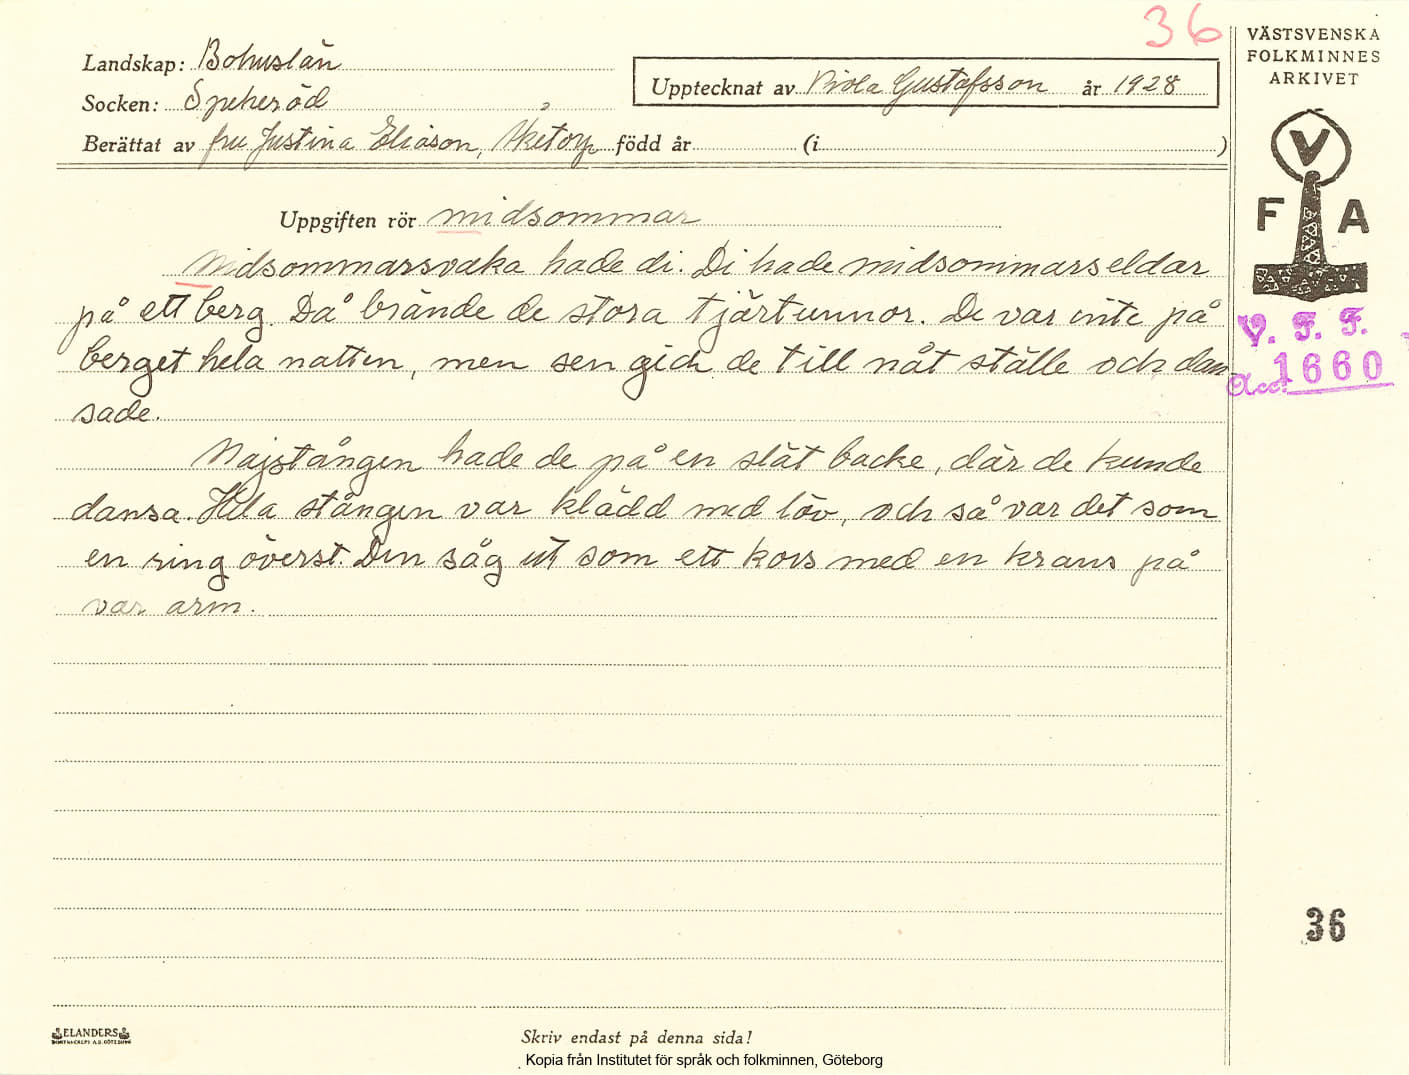 36
Landskap: Bohuslän
Socken: Spekeröd
Upptecknat av Viola Gustafsson år 1928
Berättat av fru Justina Eliason, född år (i )
Uppgiften rör midsommar
Midsommarsvaka hade di. Di hade midsommarseldar
på ett berg. Då brände de stora tjärtunnor. De var inte på
berget hela natten, men sen gick de till nåt ställe och dan
sade.
Majstången hade de på en slät backe, där de kunde
dansa. Hela stången var klädd med löv, och så var det som
en ring överst. Den såg ut som ett kors med en krans på
var arm.
VÄSTSVENSKA
FOLKMINNES
ARKIVET
V
F A
V. F. F.
Acc. 1660
36
ELANDERS
Skriv endast på denna sida!
Kopia från Institutet för språk och folkminnen, Göteborg